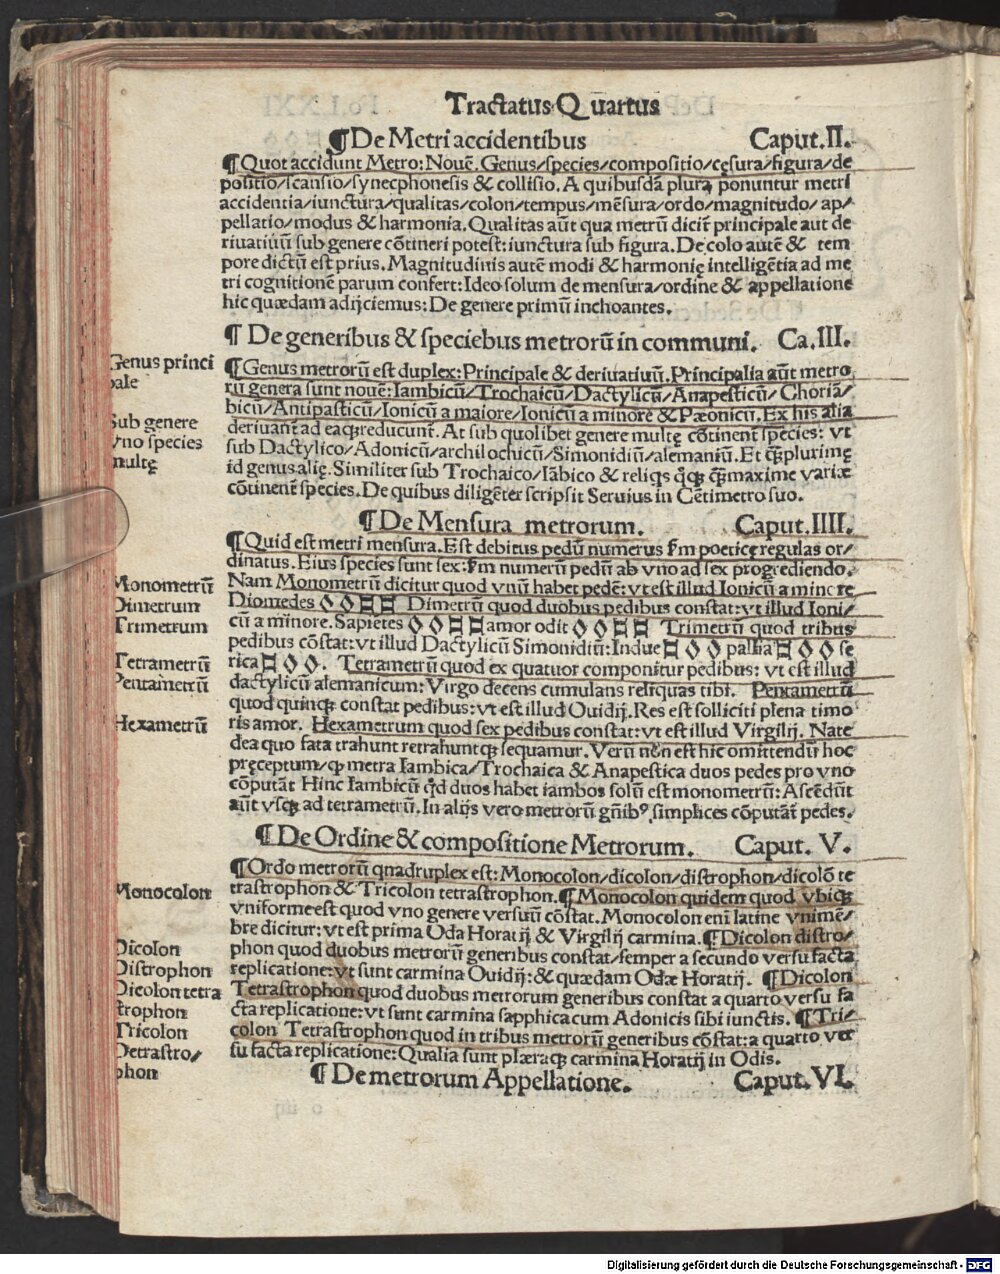 Tractatus Quartus
¶De Metri accidentibus Caput.II.
¶Quot accidunt Metro: Nouē. Genus/species/compositio/cęsura/figura/de
positio/scansio/synecphonesis & collisio. A quibusdā plura ponuntur metri
accidentia/iunctura/qualitas/colon/tempus/mēsura/ordo/magnitudo/ap/
pellatio/modus & harmonia. Qualitas aūt qua metrū dicit principale aut de
riuatiuū sub genere cōtineri potest: iunctura sub figura. De colo autē & tem
pore dictū est prius. Magnitudinis autē modi & harmonię intelligētia ad me
tri cognitionē parum confert: Ideo solum de mensura/ordine & appellatione
hic quædam adijciemus: De genere primū inchoantes.
¶ De generibus & speciebus metrorū in communi. Ca.III.
Genus princi
pale
¶Genus metrorū est duplex: Principale & deriuatiuū. Principalia aūt metro
rū genera sunt nouē: Iambicū/Trochaicū/Dactylicū/Anapesticū/Choriā/
bicū/Antipasticū/Ionicū a maiore/Ionicū a minore & Pæonicū. Ex his alia
Sub genere
vno species
multę
deriuant̄ ad eaqꝫ reducunt̄. At sub quolibet genere multę cōtinent̄ species: vt
sub Dactylico/Adonicū/archilochicū/Simonidiū/alemaniū. Et qꝫplurimę
id genus alię. Similiter sub Trochaico/Iābico & reliqs qꝫ maxime variæ
cōtinent̄ species. De quibus diligēter scripsit Seruius in Cētimetro suo.
¶De Mensura metrorum. Caput.IIII.
¶Quid est metri mensura. Est debitus pedū numerus fm poeticę regulas or/
dinatus. Eius species sunt sex: fm numerū pedū ab vno ad sex progrediendo.
Monometrū
Nam Monometrū dicitur quod vnū habet pedē: vt est illud Ionicū a minore
Dimetrum
Diomedes ◊ ◊ □ □ Dimetrū quod duobus pedibus constat: vt illud Ioni/
Trimetrum
cū a minore. Sapietes ◊ ◊ □ □ amor odit ◊ ◊ □ □ Trimetrū quod tribus
pedibus cōstat: vt illud Dactylicū Simonidiū: Indue □ ◊ ◊ pallia □ ◊ ◊ se
Tetrametrū
rica □ ◊ ◊. Tetrametrū quod ex quatuor componitur pedibus: vt est illud
Pentametrū
dactylicū alemanicum: Virgo decens cumulans reliquas tibi. Pentametrū
quod quinqꝫ constat pedibus: vt est illud Ouidij. Res est solliciti plena timo
Hexametrū
ris amor. Hexametrum quod sex pedibus constat: vt est illud Virgilij. Nate
dea quo fata trahunt retrahuntqꝫ sequamur. Verū non est hic omittendū hoc
pręceptum/ꝙ metra Iambica/Trochaica & Anapestica duos pedes pro vno
cōputāt Hinc Iambicū qd duos habet iambos solū est monometrū: Ascēdūt
aūt vsqꝫ ad tetrametrū. In alijs vero metrorū gn̄ibꝰ simplices cōputāt pedes.
¶De Ordine & compositione Metrorum. Caput. V.
¶Ordo metrorū quadruplex est: Monocolon/dicolon/distrophon/dicolō te
Monocolon
trastrophon & Tricolon tetrastrophon. ¶Monocolon quidem quod vbiqꝫ
vniforme est quod vno genere versuū cōstat. Monocolon enī latine vnimē/
bre dicitur: vt est prima Oda Horatij & Virgilij carmina. ¶Dicolon distro/
Dicolon
Distrophon
phon quod duobus metrorū generibus constat/semper a secundo versu facta
replicatione: vt sunt carmina Ouidij: & quædam Odæ Horatij. ¶Dicolon
Dicolon tetra
strophon
Tetrastrophon quod duobus metrorum generibus constat a quarto versu fa
cta replicatione: vt sunt carmina sapphica cum Adonicis sibi iunctis. ¶Tri/
Tricolon
Tetrastro/
phon
colon Tetrastrophon quod in tribus metrorū generibus cōstat: a quarto ver
su facta replicatione: Qualia sunt plæraqꝫ carmina Horatij in Odis.
¶ De metrorum Appellatione. Caput.VI.
Digitalisierung gefördert durch die Deutsche Forschungsgemeinschaft - DFG